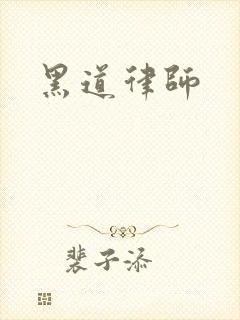 黑道律師
裴子添